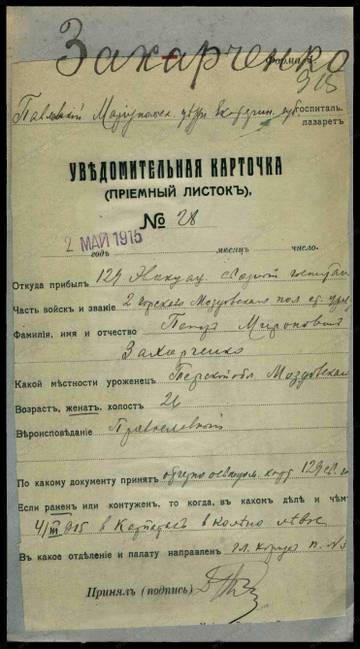 Захарченко
Форма
Маріупольск. Екатерин. губ. госпиталь.
лазаретъ
УВѢДОМИТЕЛЬНАЯ КАРТОЧКА
(ПРІЕМНЫЙ ЛИСТОКЪ),
№ 28
2 МАЙ 1915
годъ мѣсяцъ число.
Откуда прибылъ 129 Эвакуац. сводный госпиталь
Часть войскъ и званіе 2 Горско Моздокскаго пол.
Фамилія, имя и отчество Петръ Мироновичъ
Захарченко
Какой мѣстности уроженецъ Терской обл Моздокскаго
Возрастъ, женатъ, холостъ 26
Вѣроисповѣданіе Православный
По какому документу принятъ 129
Если раненъ или контуженъ, то когда, въ какомъ дѣлѣ и чѣмъ
4/III 915 в Карпатах в колѣно лѣвое
Въ какое отдѣленіе и палату направленъ гл. корпус п. №
Принялъ (подпись)